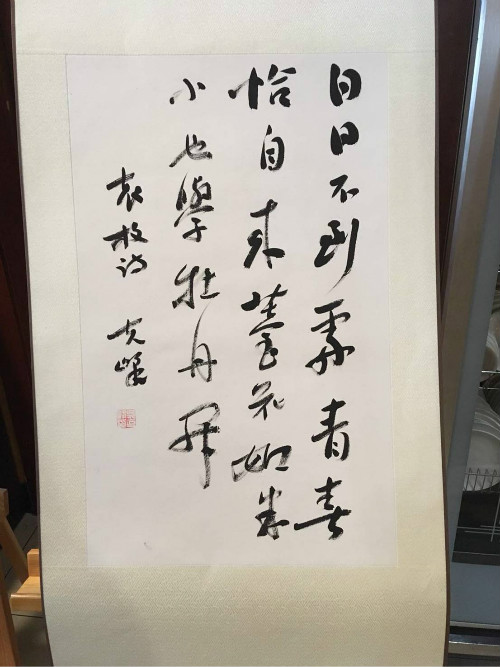 白日不到處青春
恰自來薹花如米
小也學牡丹開
袁枚詩 克